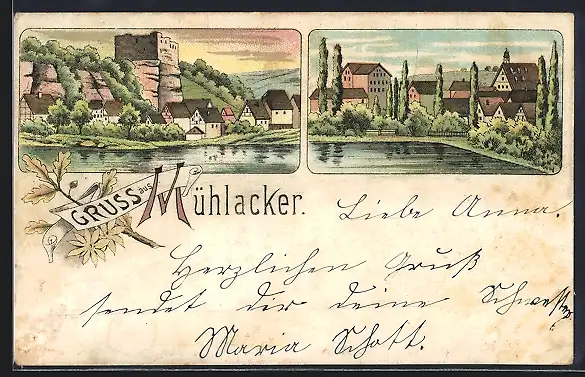 GRUSS aus Mühlacker.
Liebe Anna.
Herzlichen Gruß
sendet dir deine Schwester
Maria Schott.